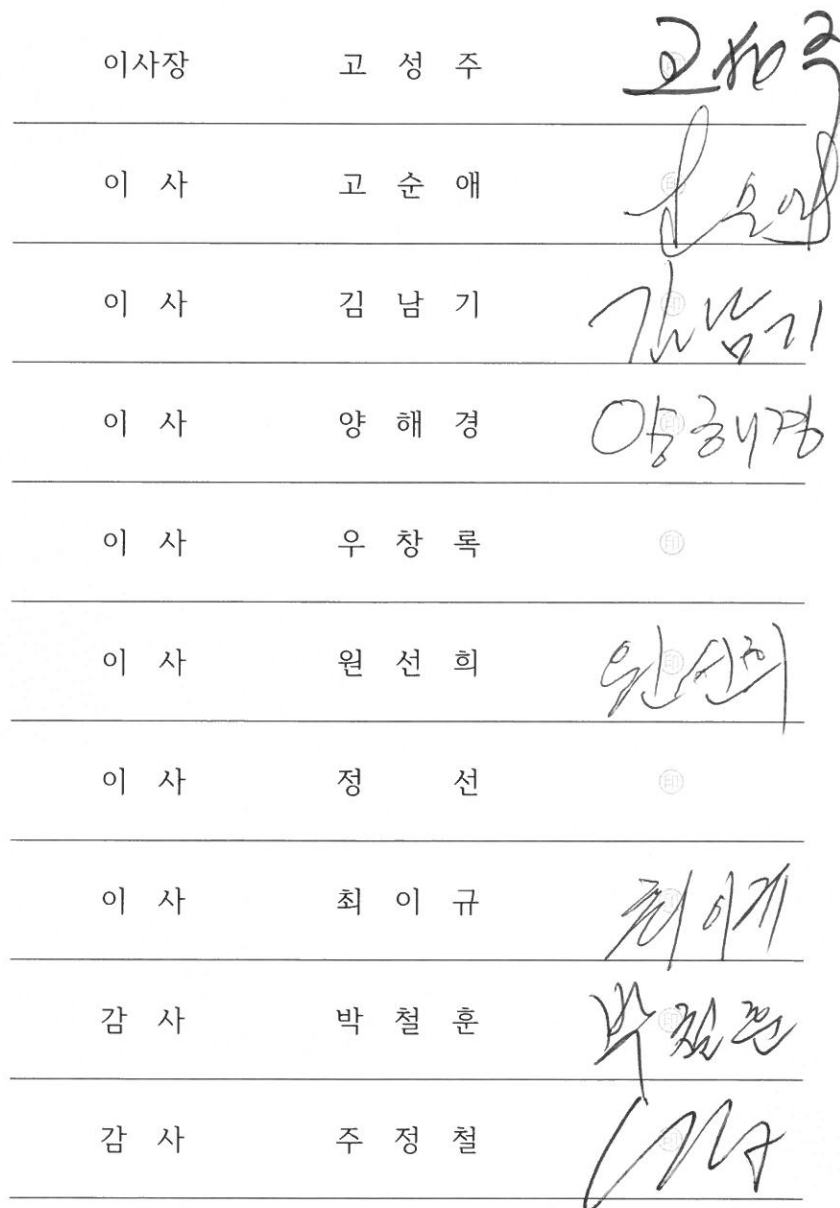 이사장 고 성 주 ㊞ 고성주
이 사 고 순 애 ㊞
이 사 김 남 기 ㊞ 김남기
이 사 양 해 경 ㊞ 양해경
이 사 우 창 록 ㊞
이 사 원 선 희 ㊞ 원선희
이 사 정 선 ㊞
이 사 최 이 규 ㊞
감 사 박 철 훈 ㊞ 박철훈
감 사 주 정 철 ㊞